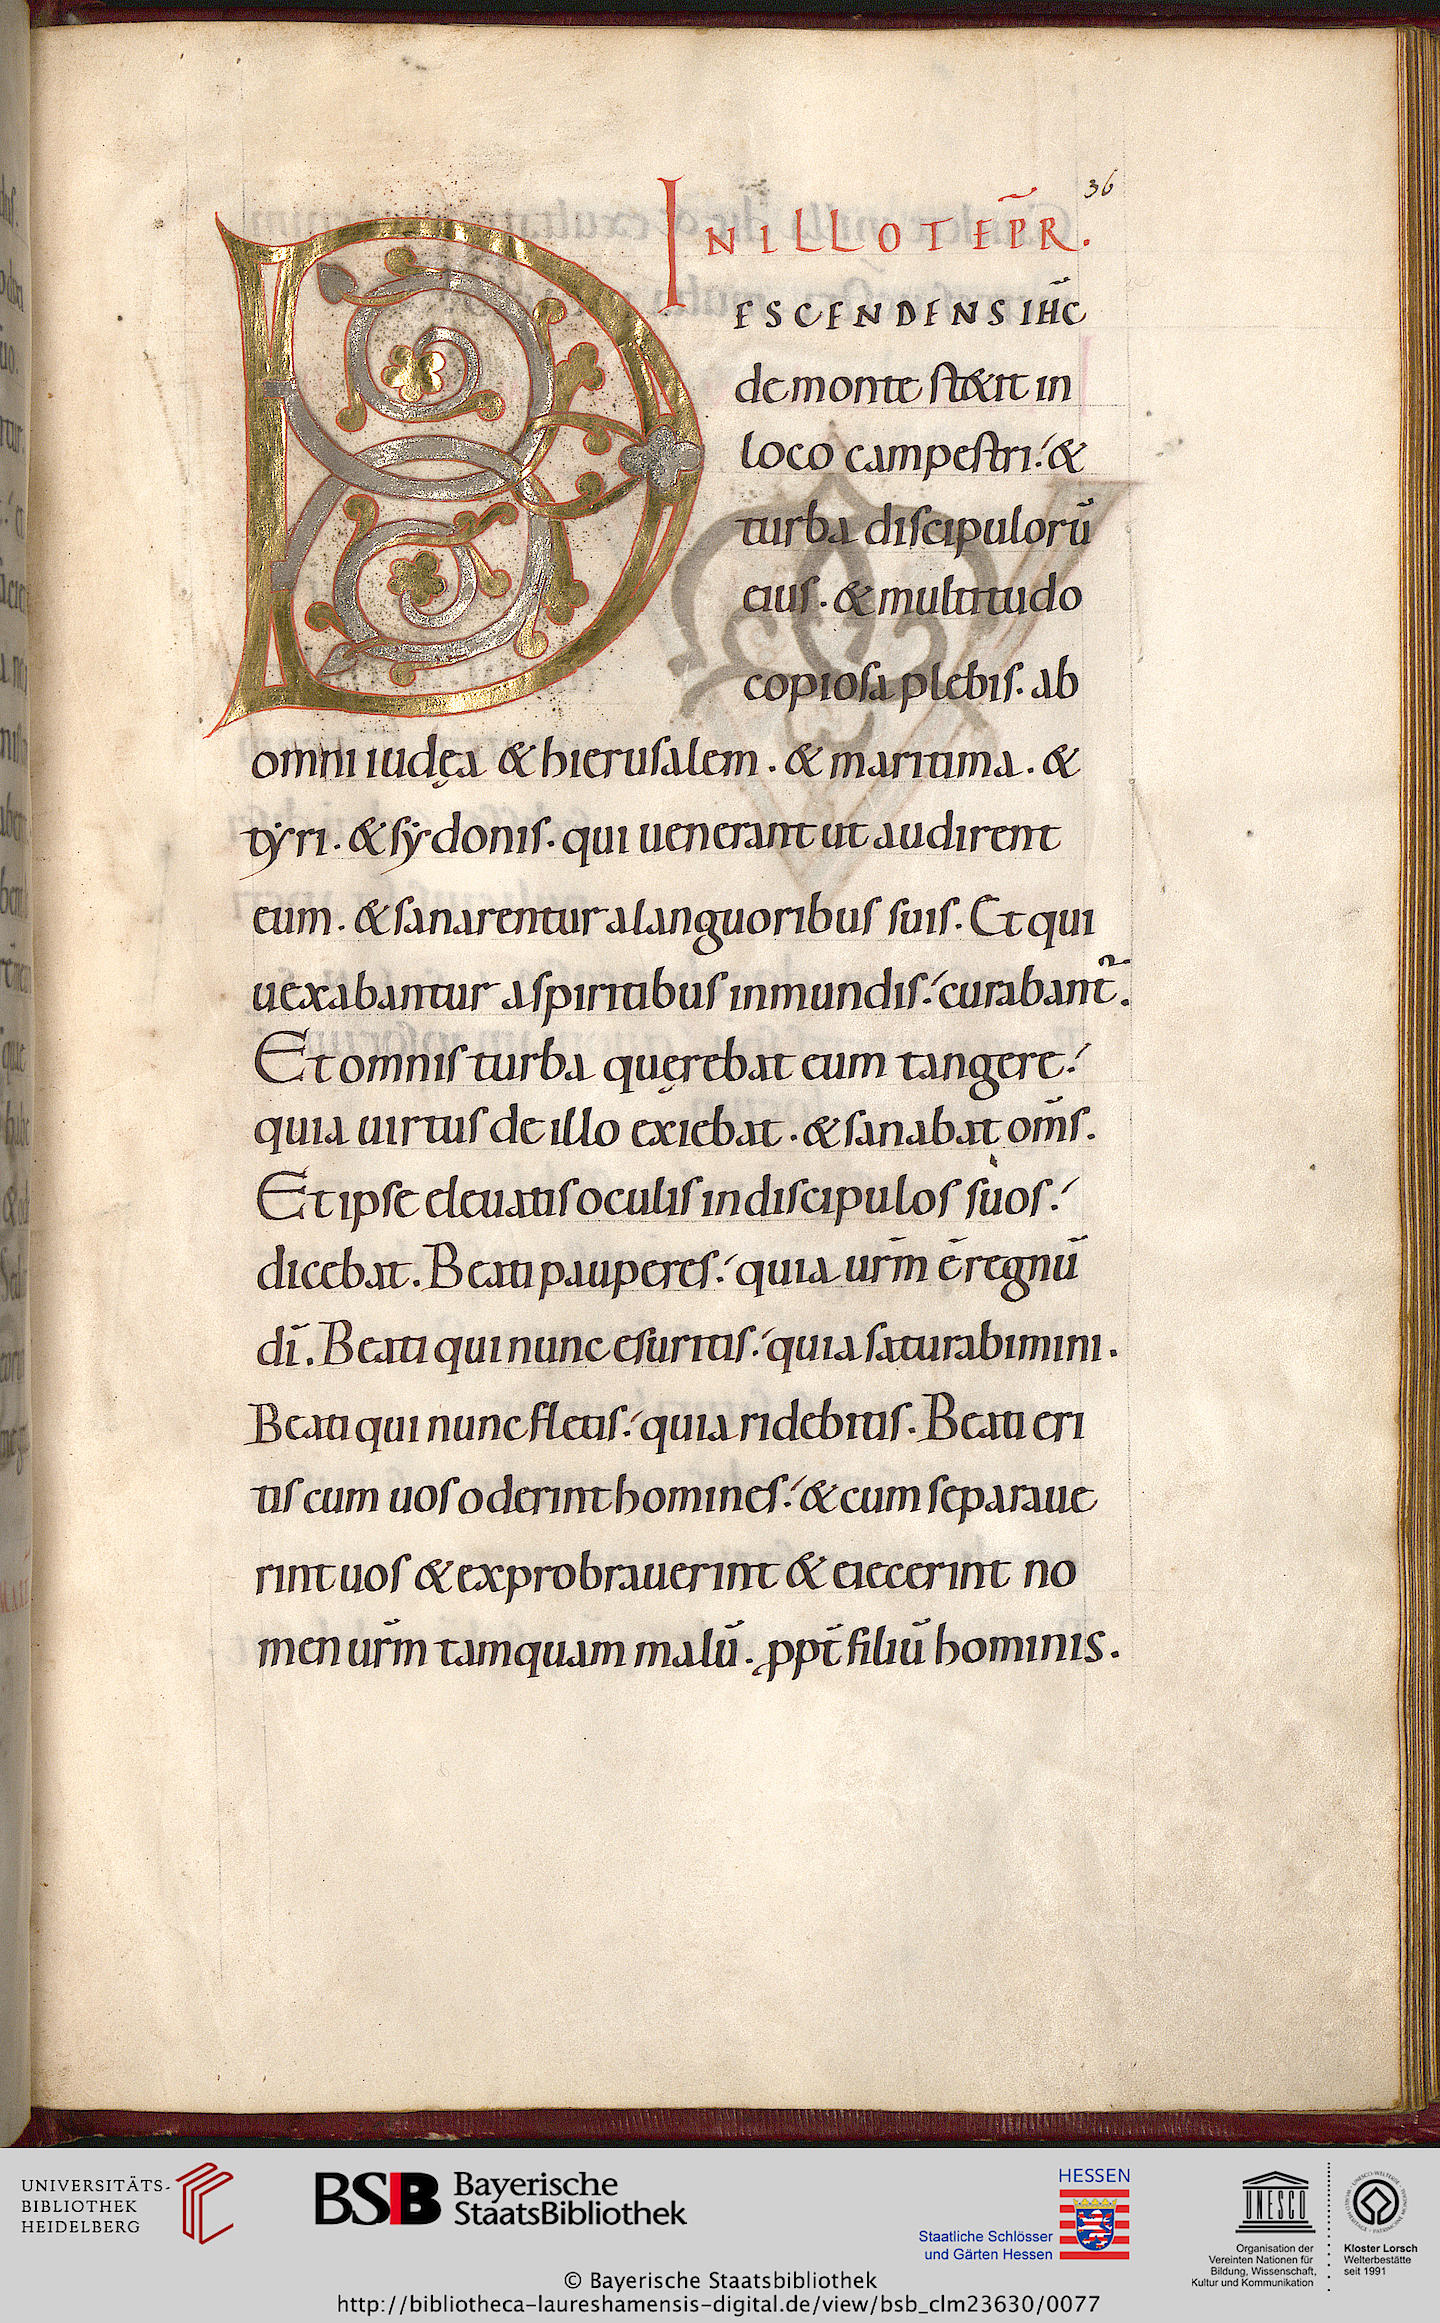 36
IN ILLO TEP̄R.
DESCENDENS IH̄C
de monte stetit in
loco campestri: &
turba discipulorū
eius. & multitudo
copiosa plebis. ab
omni iudęa & hierusalem. & maritima. &
tẏri. & sẏdonis. qui uenerant ut audirent
eum. & sanarentur a languoribus suis. Et qui
uexabantur a spiritibus inmundis: curabant᷑.
Et omnis turba quęrebat eum tangere:
quia uirtus de illo exiebat. & sanabat om̄s.
Et ipse eleuatis oculis in discipulos suos:
dicebat. Beati pauperes: quia ur̄m ē regnū
dī. Beati qui nunc esuritis: quia saturabimini.
Beati qui nunc fletis: quia ridebitis. Beati eri
tis cum uos oderint homines: & cum separaue
rint uos & exprobrauerint & eiecerint no
men ur̄m tamquam malū. ꝓpt̄ filiū hominis.
UNIVERSITÄTS-
BIBLIOTHEK
HEIDELBERG
BSB Bayerische
StaatsBibliothek
HESSEN
Staatliche Schlösser
und Gärten Hessen
UNESCO
Organisation der
Vereinten Nationen für
Bildung, Wissenschaft,
Kultur und Kommunikation
Kloster Lorsch
Welterbestätte
seit 1991
© Bayerische Staatsbibliothek
http://bibliotheca-laureshamensis-digital.de/view/bsb_clm23630/0077